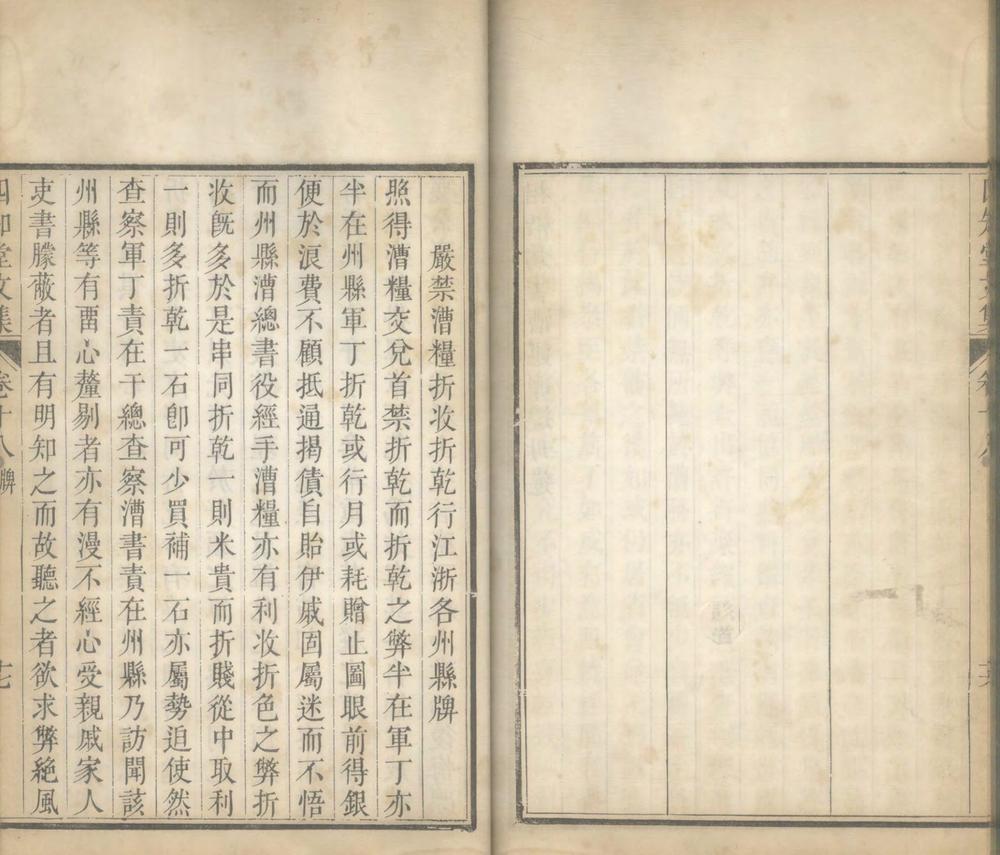 嚴禁漕糧折收折乾行江浙各州縣牌
照得漕糧交兌首禁折乾而折乾之弊半在軍丁亦
半在州縣軍丁折乾或行月或耗贈止圖眼前得銀
便於浪費不顧抵通掲債自貽伊戚固屬迷而不悟
而州縣漕總書役經手漕糧亦有利收折色之弊折
收旣多於是串同折乾一則米貴而折賤從中取利
一則多折乾一石卽可少買補一石亦屬勢迫使然
查察軍丁責在千總查察漕書責在州縣乃訪聞該
州縣等有畱心釐剔者亦有漫不經心受親戚家人
吏書朦蔽者且有明知之而故聽之者欲求弊絶風
四知堂文集 卷十八 牌 七